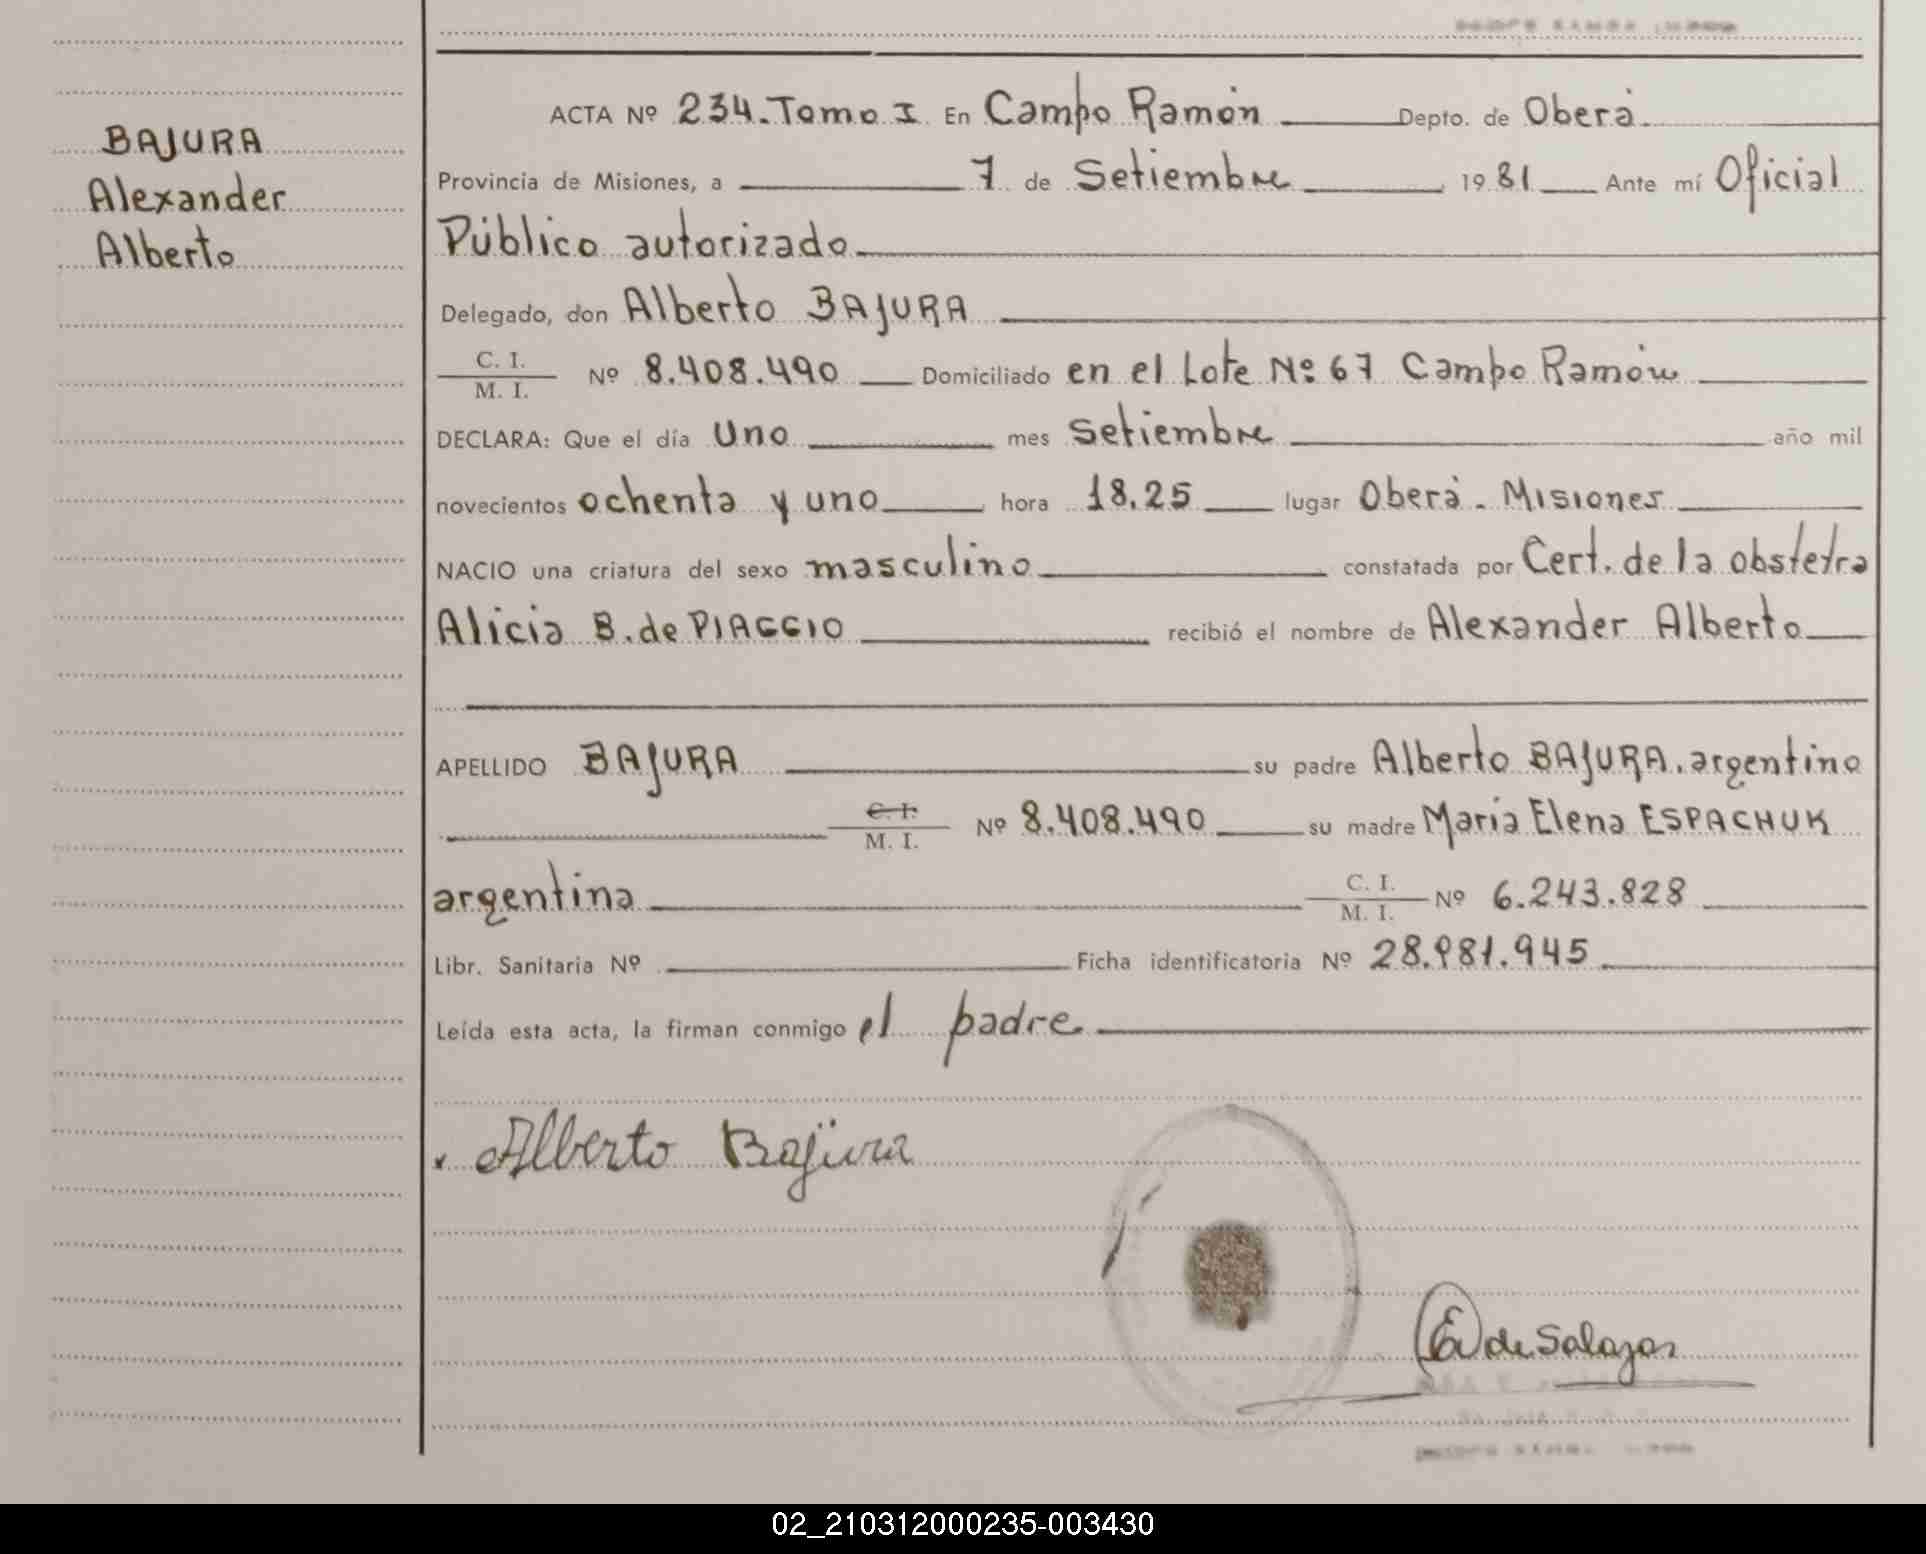 BAJURA
Alexander
Alberto
ACTA Nº 234. Tomo I En Campo Ramón Depto. de Oberá
Provincia de Misiones, a 7 de Setiembre 1981 Ante mí Oficial
Público autorizado
Delegado, don Alberto BAJURA
C. I.
M. I. Nº 8.408.490 Domiciliado en el Lote Nº 67 Campo Ramón
DECLARA: Que el día uno mes Setiembre año mil
novecientos ochenta y uno hora 18.25 lugar Oberá - Misiones
NACIO una criatura del sexo masculino constatada por Cert. de la obstetra
Alicia B. de PIAGGIO recibió el nombre de Alexander Alberto
APELLIDO BAJURA su padre Alberto BAJURA. argentino
C. I.
M. I. Nº 8.408.490 su madre Maria Elena ESPACHUK
argentina C. I.
M. I. Nº 6.243.828
Libr. Sanitaria Nº Ficha identificatoria Nº 28.981.945
Leída esta acta, la firman conmigo el padre
Alberto Bajura
de Salazar
02_210312000235-003430